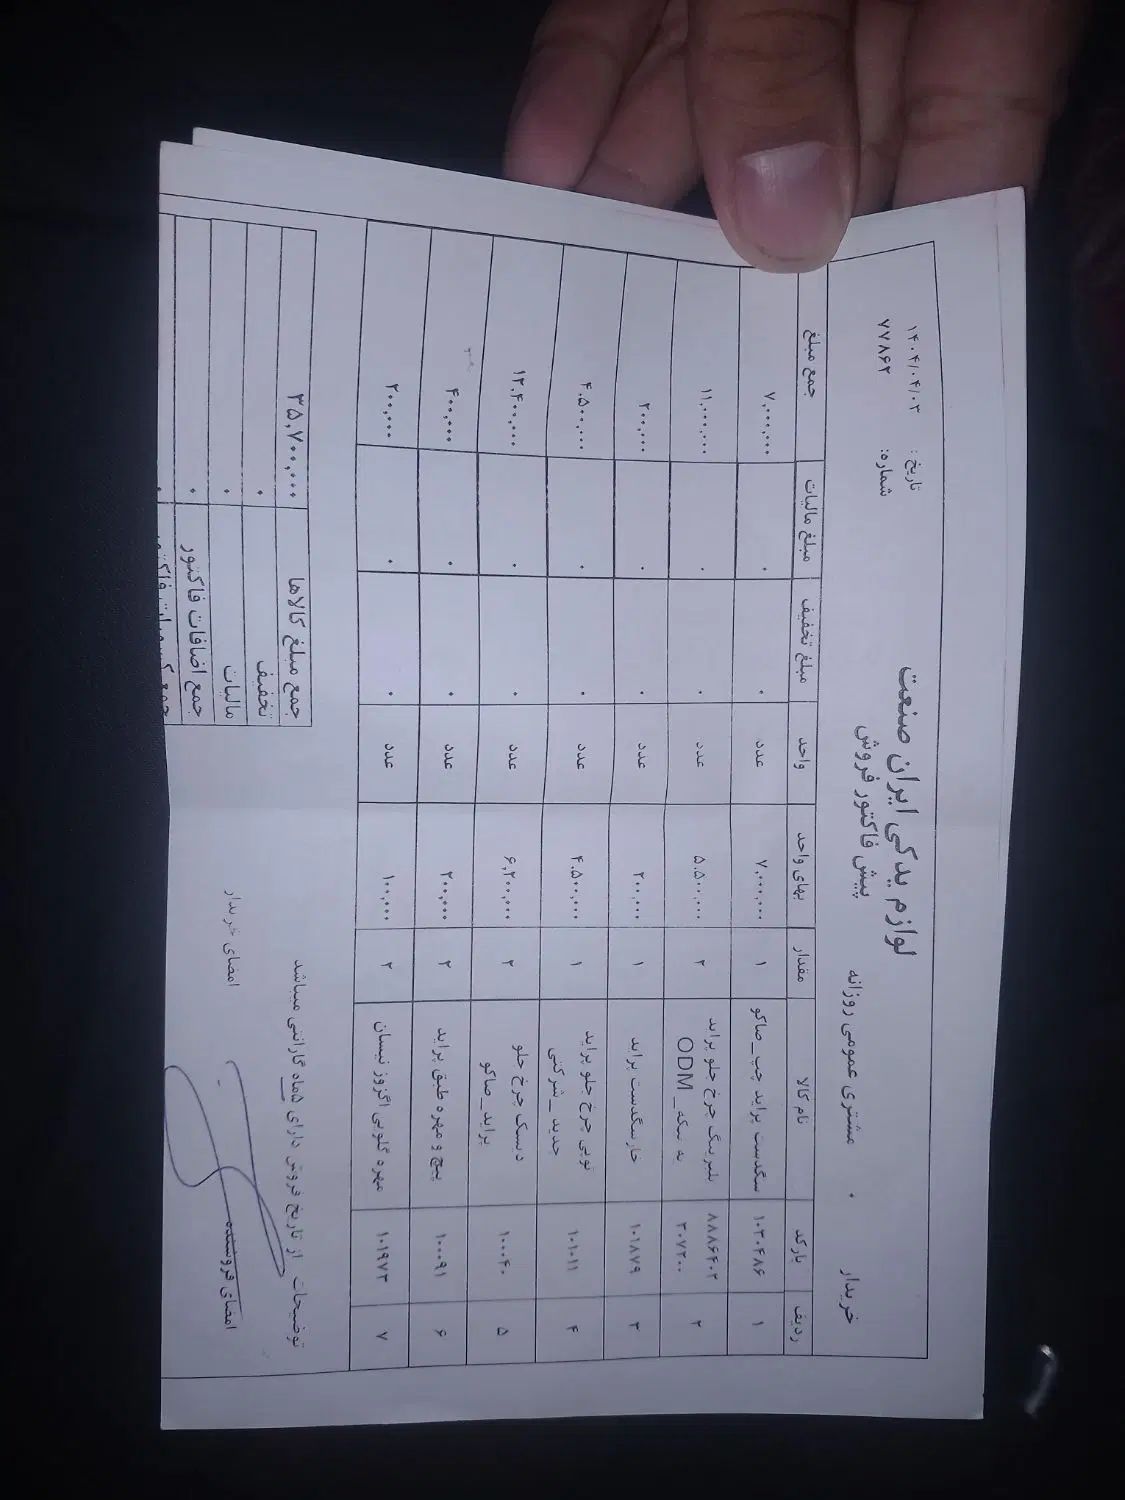 لوازم یدکی ایران صنعت
پیش فاکتور فروش
تاریخ : ۱۴۰۴/۰۴/۰۳
شماره: ۷۷۸۶۲
خریدار ۰ مشتری عمومی روزانه
ردیف بارکد نام کالا مقدار بهای واحد واحد مبلغ تخفیف مبلغ مالیات جمع مبلغ
۱ ۱۰۳۰۴۸۶ سگدست پراید چپ_صاکو ۱ ۷,۰۰۰,۰۰۰ عدد ۰ ۰ ۷,۰۰۰,۰۰۰
۲ ۸۸۸۶۴۰۲ بلبرینگ چرخ جلو پراید ۲ ۵,۵۰۰,۰۰۰ عدد ۰ ۰ ۱۱,۰۰۰,۰۰۰
۲۰۷۲۰۰ نه سکه_ODM
۳ ۱۰۱۸۷۹ خارسگدست پراید ۱ ۲۰۰,۰۰۰ عدد ۰ ۰ ۲۰۰,۰۰۰
۴ ۱۰۱۰۱۱ توپی چرخ جلو پراید ۱ ۴,۵۰۰,۰۰۰ عدد ۰ ۰ ۴,۵۰۰,۰۰۰
جدید _شرکتی
۵ ۱۰۰۰۴۰ دیسک چرخ جلو ۲ ۶,۲۰۰,۰۰۰ عدد ۰ ۰ ۱۲,۴۰۰,۰۰۰
پراید_صاکو
۶ ۱۰۰۰۹۱ پیچ و مهره طبق پراید ۲ ۲۰۰,۰۰۰ عدد ۰ ۰ ۴۰۰,۰۰۰
۷ ۱۰۱۹۷۳ مهره گلویی اگزوز نیسان ۲ ۱۰۰,۰۰۰ عدد ۰ ۰ ۲۰۰,۰۰۰
جمع مبلغ کالاها ۳۵,۷۰۰,۰۰۰
تخفیف ۰
مالیات ۰
جمع اضافات فاکتور ۰
توضیحات از تاریخ فروش دارای ۵ماه گارانتی میباشد
امضای فروشنده امضای خریدار